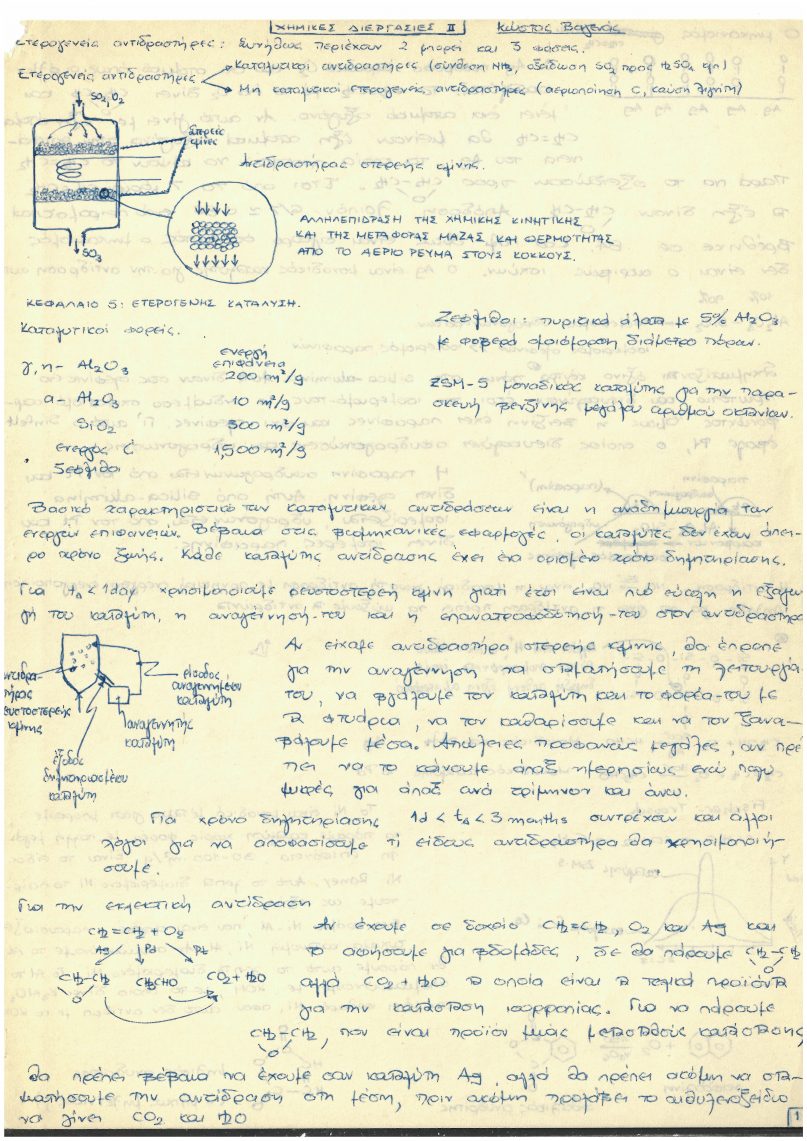 ΧΗΜΙΚΕΣ ΔΙΕΡΓΑΣΙΕΣ ΙΙ Κώστας Βαγενάς
Ετερογενείς αντιδραστήρες: Συνήθως περιέχουν 2 μπορεί και 3 φάσεις.
Ετερογενείς αντιδραστήρες
Καταλυτικοί αντιδραστήρες (σύνθεση NH3, οξείδωση SO2 προς H2SO4 κλπ)
Μη καταλυτικοί ετερογενείς αντιδραστήρες (αεριοποίηση C, καύση λιγνίτη)
SO2, O2
στερεές κλίνες
Αντιδραστήρας στερεής κλίνης.
SO3
ΑΛΛΗΛΕΠΙΔΡΑΣΗ ΤΗΣ ΧΗΜΙΚΗΣ ΚΙΝΗΤΙΚΗΣ
ΚΑΙ ΤΗΣ ΜΕΤΑΦΟΡΑΣ ΜΑΖΑΣ ΚΑΙ ΘΕΡΜΟΤΗΤΑΣ
ΑΠΟ ΤΟ ΑΕΡΙΟ ΡΕΥΜΑ ΣΤΟΥΣ ΚΟΚΚΟΥΣ.
ΚΕΦΑΛΑΙΟ 5: ΕΤΕΡΟΓΕΝΗΣ ΚΑΤΑΛΥΣΗ.
Καταλυτικοί φορείς.
ενεργή επιφάνεια
γ,η- Al2O3 200 m²/g
α- Al2O3 10 m²/g
SiO2 300 m²/g
ενεργός C 1,500 m²/g
ζεόλιθοι
Ζεόλιθοι: πυριτικά άλατα με 5% Al2O3
με φοβερά ομοιόμορφη διάμετρο πόρων.
ZSM-5 μοναδικός καταλύτης για την παρα-
σκευή βενζίνης μεγάλου αριθμού οκτανίων.
Βασικό χαρακτηριστικό των καταλυτικών αντιδράσεων είναι η αναδημιουργία των
ενεργών επιφανειών. Βέβαια στις βιομηχανικές εφαρμογές, οι καταλύτες δεν έχουν άπει-
ρο χρόνο ζωής. Κάθε καταλύτης αντίδρασης έχει ένα ορισμένο χρόνο δηλητηρίασης.
Για td < 1day χρησιμοποιούμε ρευστοστερεή κλίνη γιατί έτσι είναι πιο εύκολη η εξαγω-
γή του καταλύτη, η αναγέννησή-του και η επανατροφοδότησή-του στον αντιδραστήρα
αντιδρα-
τήρας
ρευστοστερεής
κλίνης
είσοδος
αναγεννημένου
καταλύτη
αναγεννητής
καταλύτη
έξοδος
δηλητηριασμένου
καταλύτη
Αν είχαμε αντιδραστήρα στερεής κλίνης, θα έπρεπε
για την αναγέννηση να σταματήσουμε τη λειτουργία
του, να βγάλουμε τον καταλύτη και το φορέα-του με
τα φτυάρια, να τον καθαρίσουμε και να τον ξανα-
βάλουμε μέσα. Απώλειες προφανώς μεγάλες, αν πρέ
πει να το κάνουμε άπαξ ημερησίως ενώ πολύ
μικρές για άπαξ ανά τρίμηνον και άνω.
Για χρόνο δηλητηρίασης 1d < td < 3 months συντρέχουν και άλλοι
λόγοι για να αποφασίσουμε τι είδους αντιδραστήρα θα χρησιμοποιή-
σουμε.
Για την εκλεκτική αντίδραση
CH2=CH2 + O2
Ag Pd Pt
CH2-CH2 CH3CHO CO2+H2O
O
Αν έχουμε σε δοχείο CH2=CH2, O2 και Ag και
το αφήσουμε για βδομάδες, δε θα πάρουμε CH2-CH2
O
αλλά CO2+H2O τα οποία είναι τα τελικά προϊόντα
για την κατάσταση ισορροπίας. Για να πάρουμε
CH2-CH2, που είναι προϊόν μιάς μετασταθούς κατάστασης
O
θα πρέπει βέβαια να έχουμε σαν καταλύτη Ag, αλλά θα πρέπει ακόμη να στα-
ματήσουμε την αντίδραση στη μέση, πριν ακόμη προλάβει το αιθυλενοξείδιο
να γίνει CO2 και H2O
1